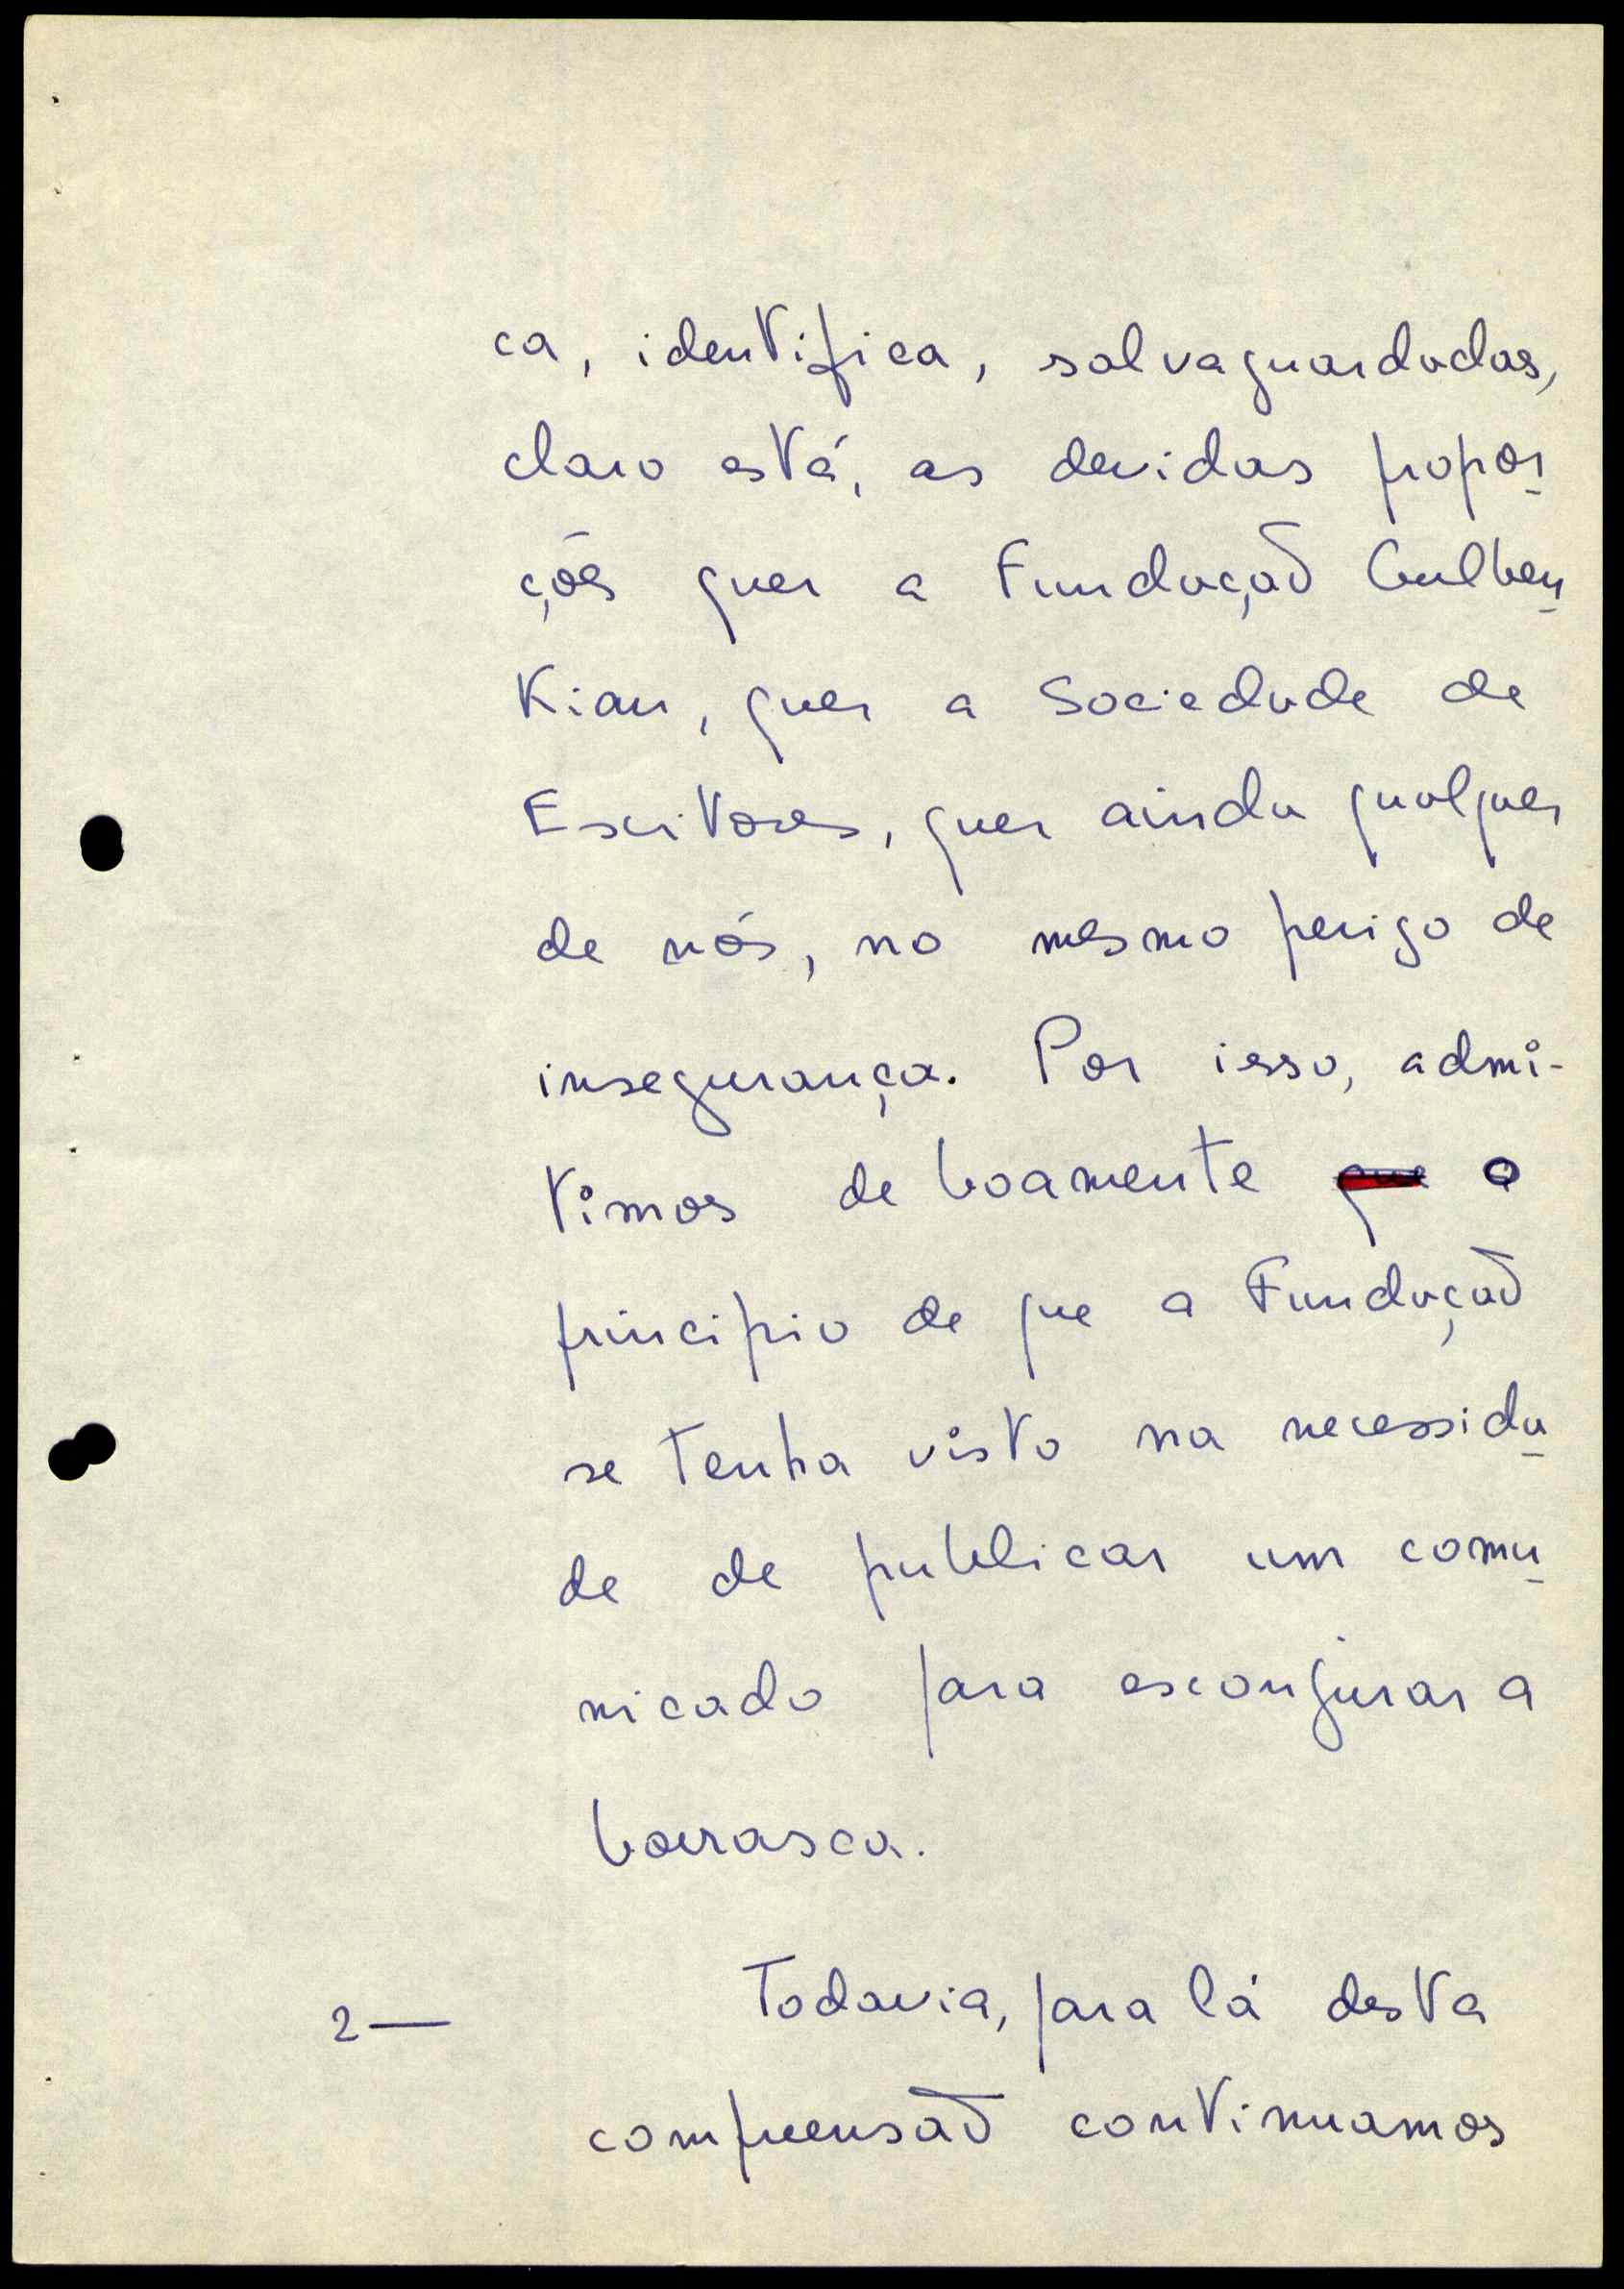 ca, identifica, salvaguardadas,
claro está, as devidas propor
ções quer a Fundação Gulben
Kian, quer a Sociedade de
Escritores, quer ainda qualquer
de nós, no mesmo perigo de
insegurança. Por isso, admi-
timos de boamente que o
principio de que a Fundação
se tenha visto na necessida
de de publicar um comu
nicado para esconjurar a
borrasca.
2— Todavia, para lá desta
compreensão continuamos